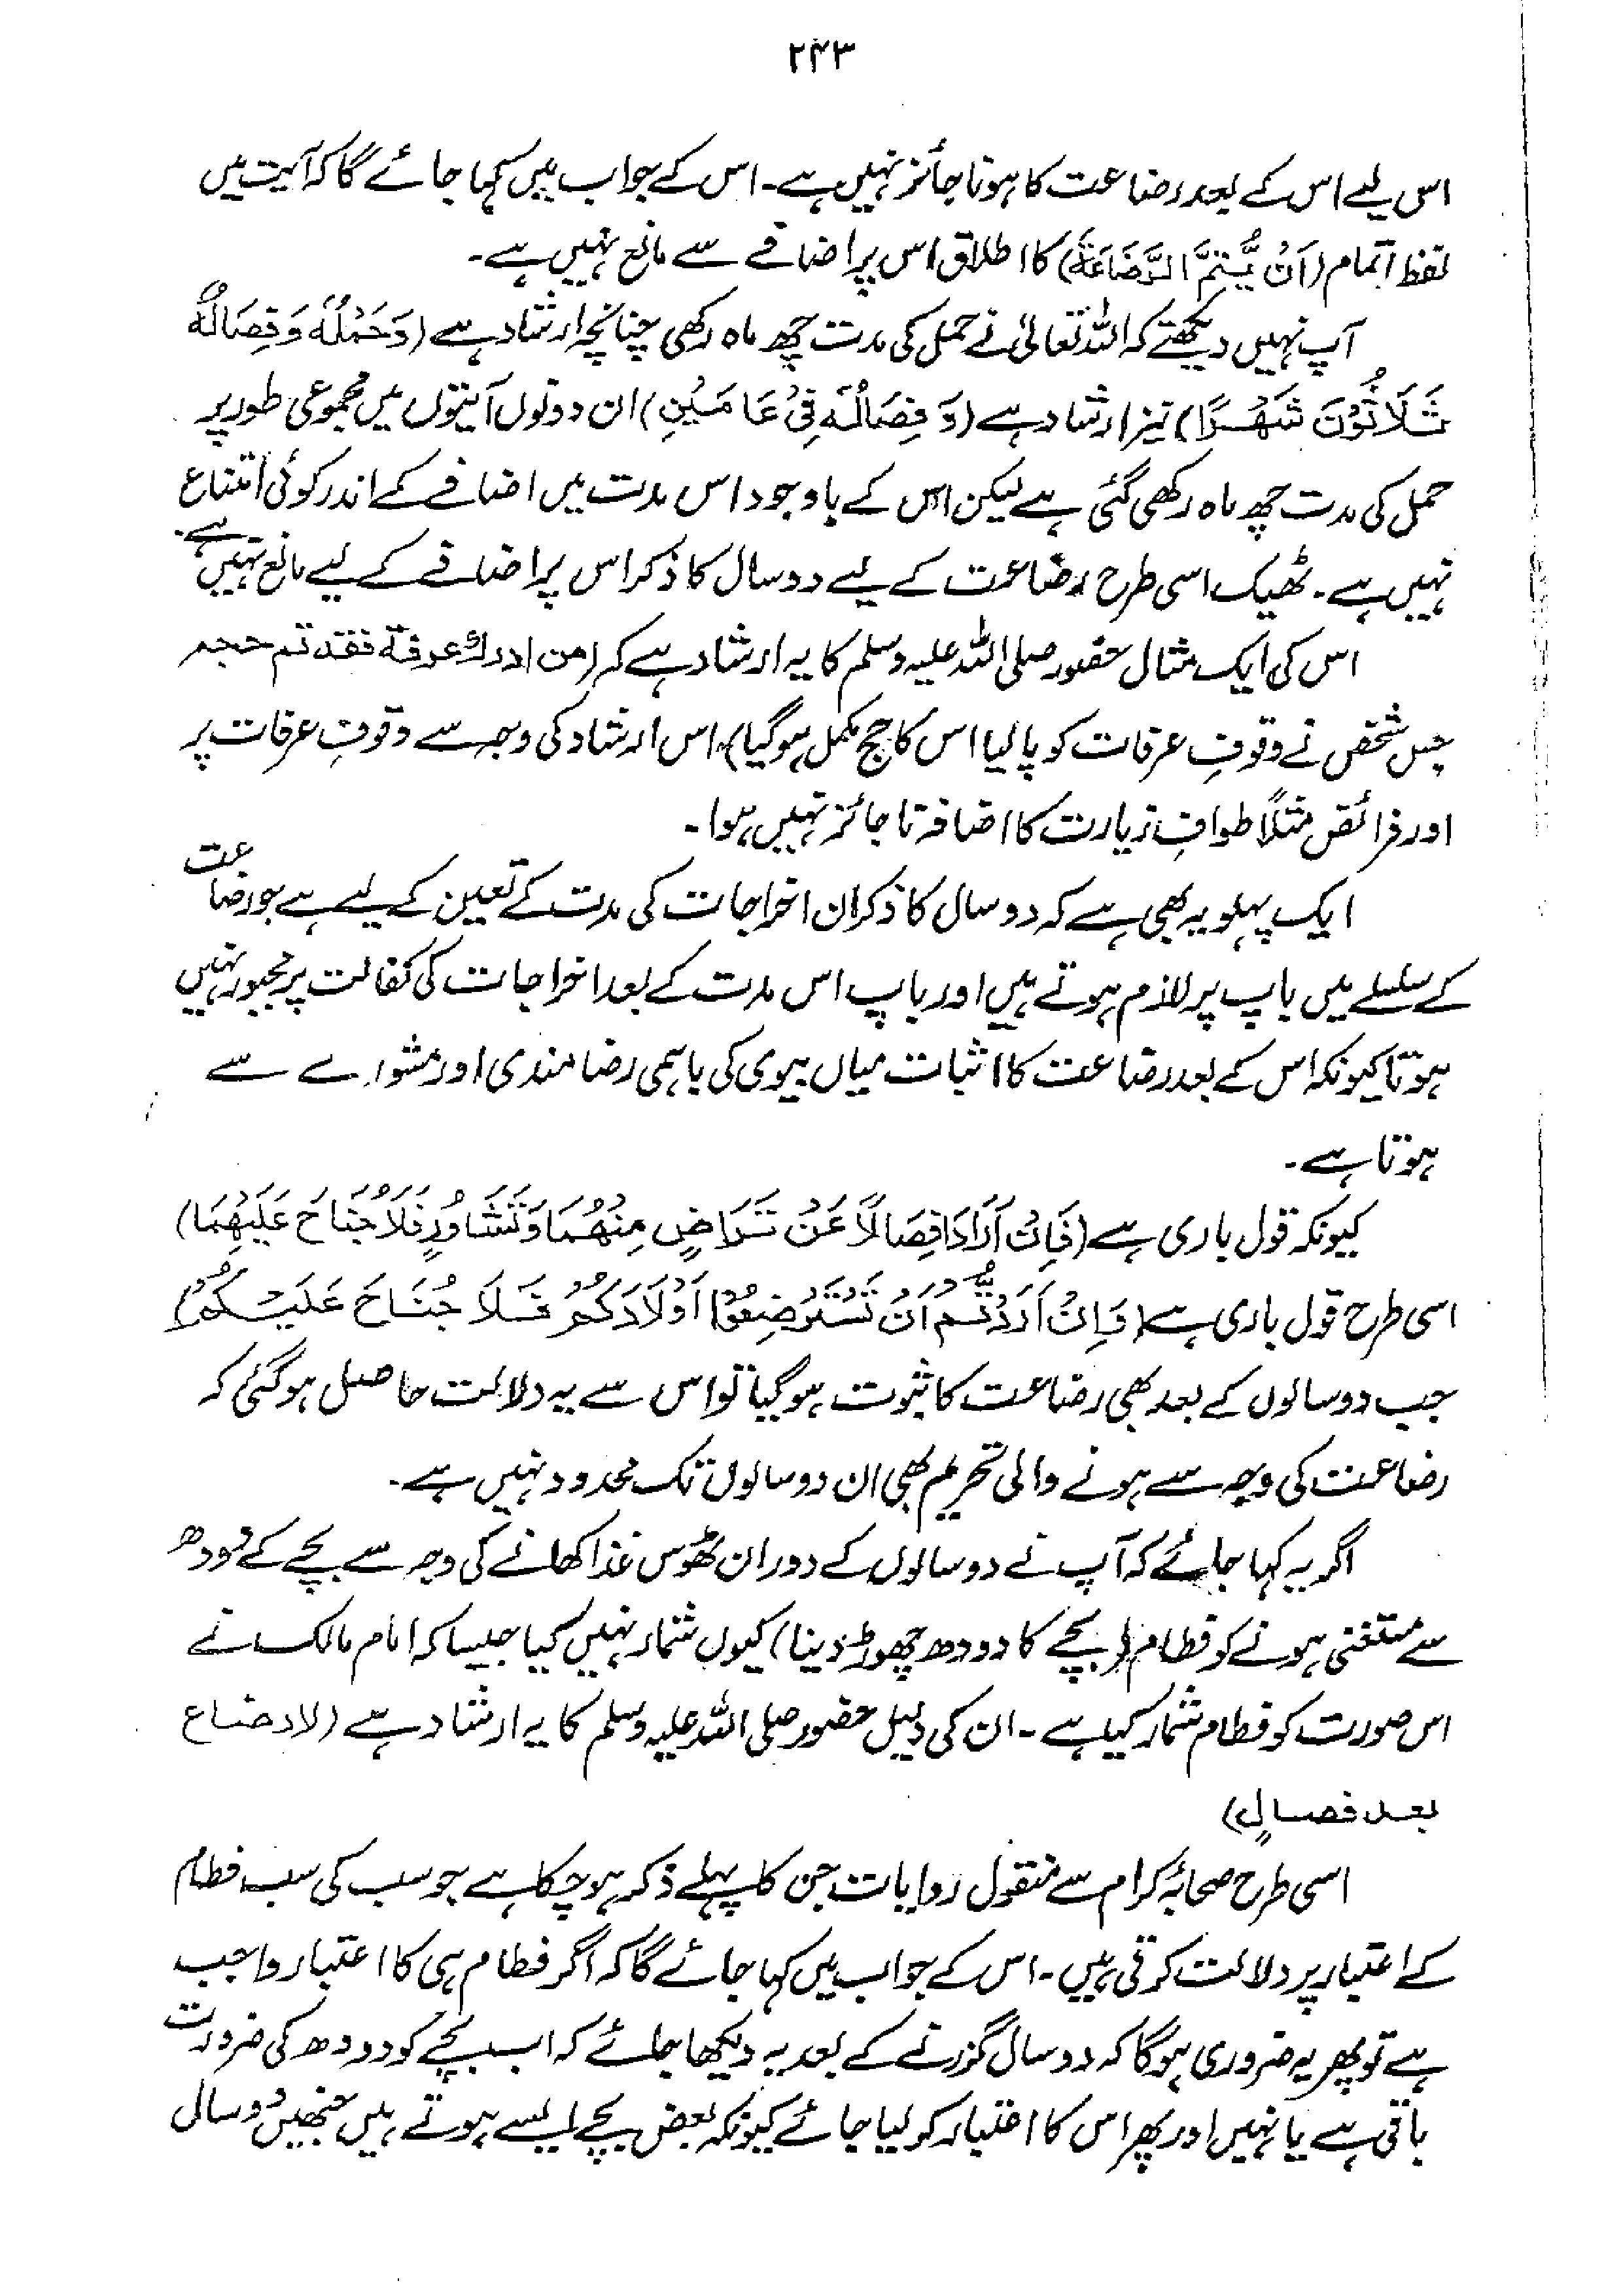 ۲۴۳
اس لیے اس کے بعد رضاعت کا ہونا جائز نہیں ہے۔ اس کے جواب میں کہا جائے گا کہ آیت میں
لفظ اتمام (اَنْ یُّتِمَّ الرَّضَاعَۃَ) کا اطلاق اس پر اضافے سے مانع نہیں ہے۔
آپ نہیں دیکھتے کہ اللہ تعالیٰ نے حمل کی مدت چھ ماہ رکھی چنانچہ ارشاد ہے (وَحَمْلُہٗ وَفِصَالُہٗ
ثَلَاثُوْنَ شَھْرًا) نیز ارشاد ہے (وَفِصَالُہٗ فِیْ عَامَیْنِ) ان دونوں آیتوں میں مجموعی طور پر
حمل کی مدت چھ ماہ رکھی گئی ہے لیکن اس کے باوجود اس مدت میں اضافے کے اندر کوئی امتناع
نہیں ہے۔ ٹھیک اسی طرح رضاعت کے لیے دو سال کا ذکر اس پر اضافے کے لیے مانع نہیں ہے۔
اس کی ایک مثال حضور صلی اللہ علیہ وسلم کا یہ ارشاد ہے کہ (من ادرك عرفة فقد تم حجه
جس شخص نے وقوفِ عرفات کو پا لیا اس کا حج مکمل ہو گیا) اس ارشاد کی وجہ سے وقوفِ عرفات پر
اور فرائض مثلاً طوافِ زیارت کا اضافہ ناجائز نہیں ہوا۔
ایک پہلو یہ بھی ہے کہ دو سال کا ذکر ان اخراجات کی مدت کے تعین کے لیے ہے جو رضاعت
کے سلسلے میں باپ پر لازم ہوتے ہیں اور باپ اس مدت کے بعد اخراجات کی کفالت پر مجبور نہیں
ہوتا کیونکہ اس کے بعد رضاعت کا اثبات میاں بیوی کی باہمی رضامندی اور مشورے سے
ہوتا ہے۔
کیونکہ قول باری ہے (فَاِنْ اَرَادَا فِصَالًا عَنْ تَرَاضٍ مِنْھُمَا وَتَشَاوُرٍ فَلَا جُنَاحَ عَلَیْھِمَا)
اسی طرح قول باری ہے (وَاِنْ اَرَدْتُّمْ اَنْ تَسْتَرْضِعُوْا اَوْلَادَکُمْ فَلَا جُنَاحَ عَلَیْکُمْ)
جب دو سالوں کے بعد بھی رضاعت کا ثبوت ہو گیا تو اس سے یہ دلالت حاصل ہو گئی کہ
رضاعت کی وجہ سے ہونے والی تحریم بھی ان دو سالوں تک محدود نہیں ہے۔
اگر یہ کہا جائے کہ آپ نے دو سالوں کے دوران ٹھوس غذا کھانے کی وجہ سے بچے کے دودھ
سے مستغنی ہونے کو فطام (بچے کا دودھ چھوڑ دینا) کیوں شمار نہیں کیا جیسا کہ امام مالک نے
اس صورت کو فطام شمار کیا ہے۔ ان کی دلیل حضور صلی اللہ علیہ وسلم کا یہ ارشاد ہے (لا رضاع
بعد فصالٍ)
اسی طرح صحابۂ کرام سے منقول روایات جن کا پہلے ذکر ہو چکا ہے جو سب کی سب فطام
کے اعتبار پر دلالت کرتی ہیں۔ اس کے جواب میں کہا جائے گا کہ اگر فطام ہی کا اعتبار واجب
ہے تو پھر یہ ضروری ہو گا کہ دو سال گزرنے کے بعد یہ دیکھا جائے کہ اب بچے کو دودھ کی ضرورت
باقی ہے یا نہیں اور پھر اس کا اختیار کر لیا جائے کیونکہ بعض بچے ایسے ہوتے ہیں جنھیں دو سال